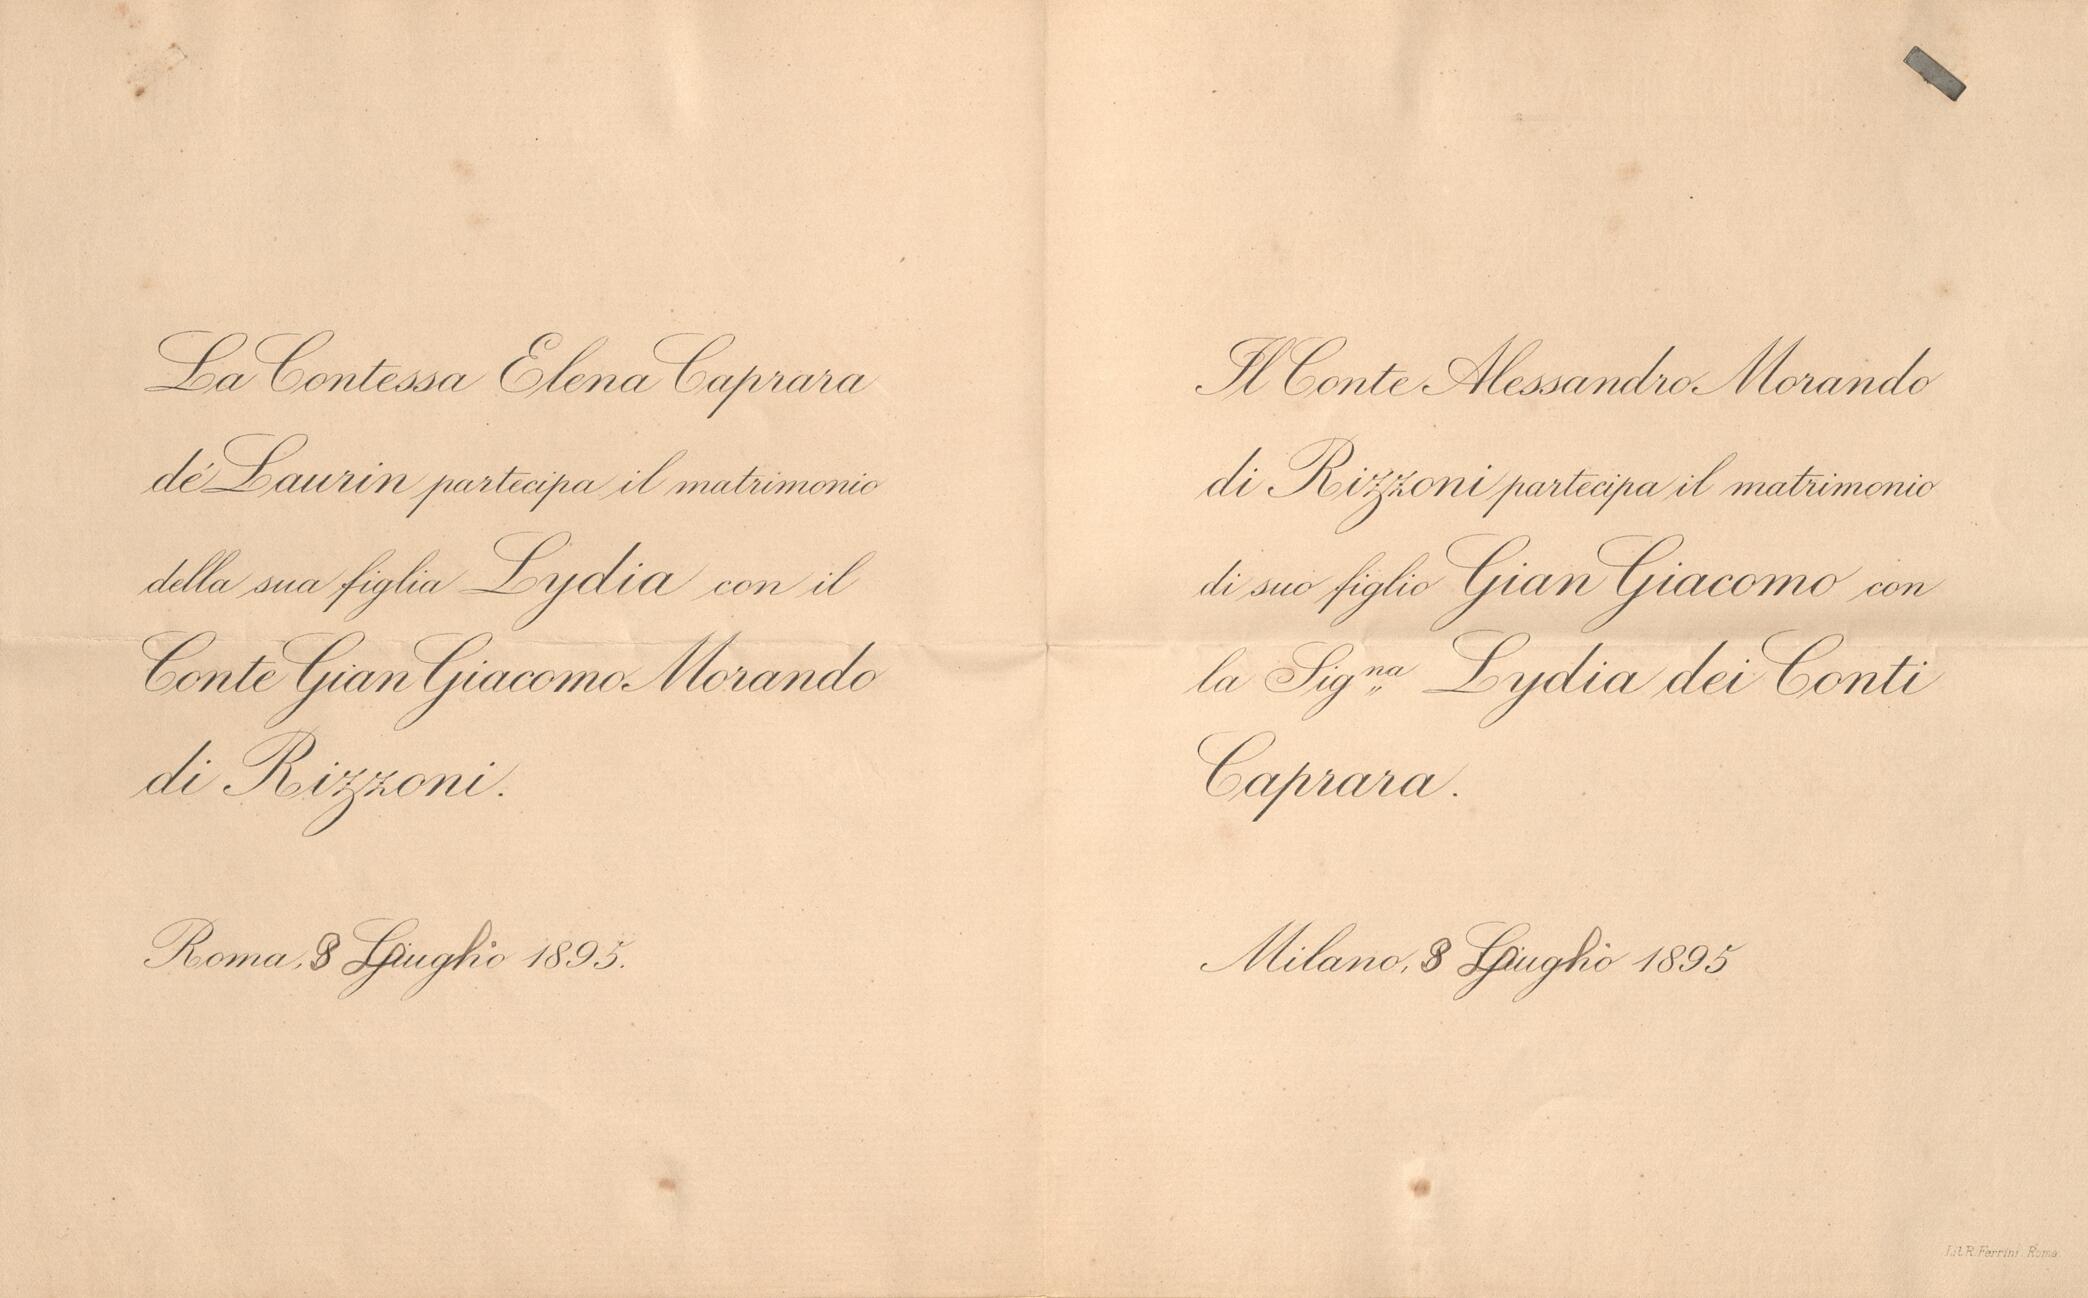 La Contessa Elena Caprara
de' Laurin partecipa il matrimonio
della sua figlia Lydia con il
Conte Gian Giacomo Morando
di Rizzoni.
Roma, 8 Luglio 1895.
Il Conte Alessandro Morando
di Rizzoni partecipa il matrimonio
di suo figlio Gian Giacomo con
la Sig.na Lydia dei Conti
Caprara.
Milano, 8 Luglio 1895
Lit. R. Ferrini. Roma.